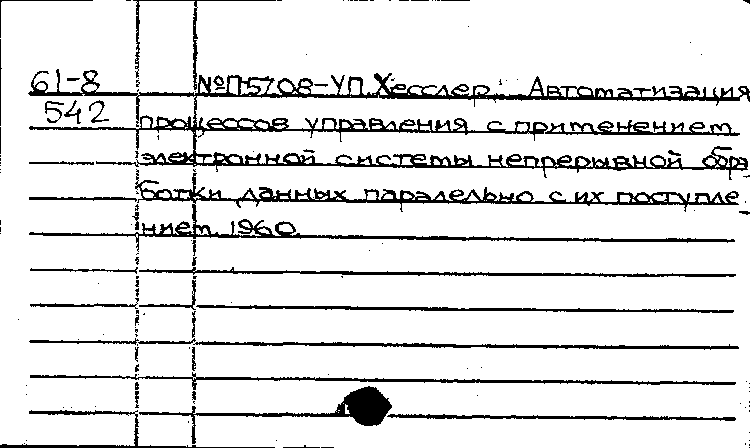 61-8 №П-5708-УП. Хесслер. Автоматизация
542 процессов управления с применением
электронной системы непрерывной обра
ботки данных паралельно с их поступле
нием. 1960.